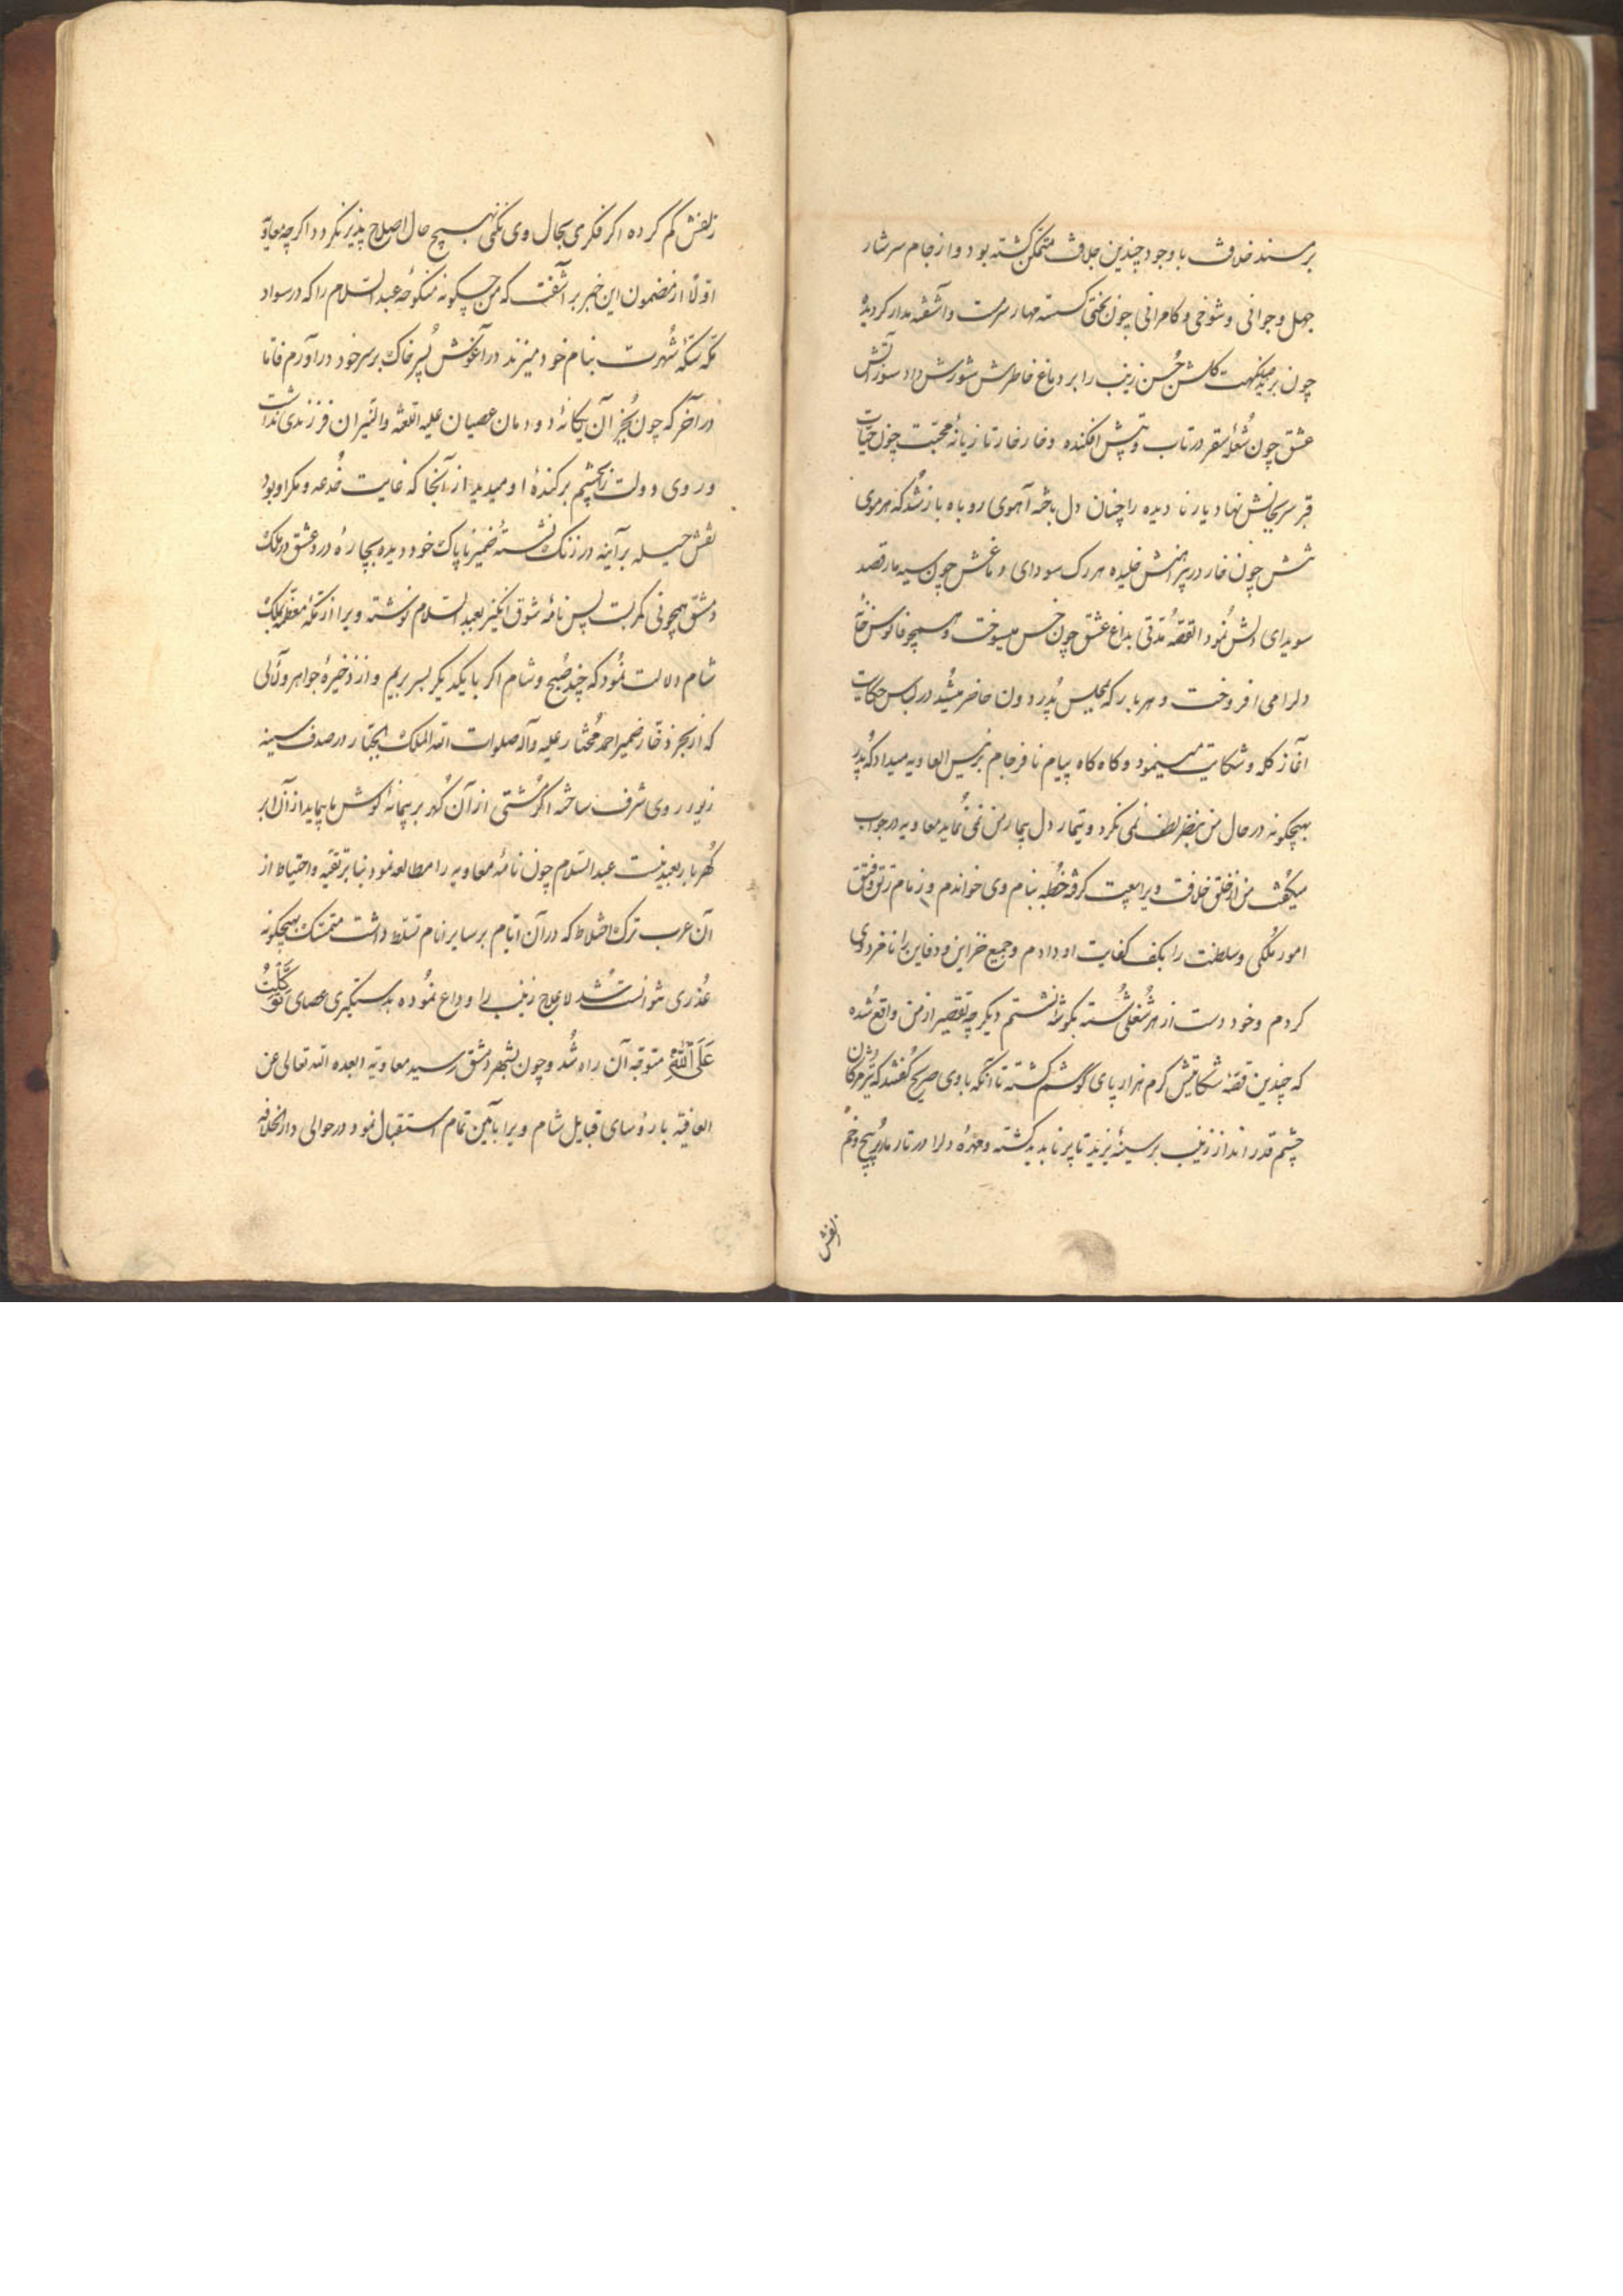 بر مسند خلافت با وجود چندین جلافت متمکن گشته بود و از جام سرشار
جهل و جوانی و شوخی و کامرانی چون بختی گسسته مهار سرمست و آشفته مدار گردیده
چون نکهت گلشن حسن زینب را بر دماغ خاطرش شورش داد سوزآتش
عشق چون شعله سقر در تاب و تپش افکنده و خار خار تازیانه محبت چون حیات
بر سر جانش نهاد یار نادیده را چنان دل باخته آهوی روباه باز شد که هر موی
تنش چون خار در پیراهنش خلیده هر رگ سودای دماغش چون سیه مار قصد
سویدای دلش نمود القصه مدتی بداغ عشق چون خس میسوخت و همچو فانوس خانه
دلرا می افروخت و هر بار که بمجلس پدر دون حاضر میشد در لباس حکایت
آغاز گله و شکایت مینمود و گاه گاه پیام نافرجام برئیس العاویه میداد که پدر
بهیچگونه در حال من بنظر لطف نمی نگرد و تیمار دل بیمار من نمی نماید معاویه در جواب
میگفت من از خلق خلافت ویرا بیعت گرفته خطبه بنام وی خواندم و زمام رتق و فتق
امور ملکی و سلطنت را بکف کفایت او دادم و جمیع خزاین و دفاین را نامزد وی
کردم و خود دست از هر شغلی شسته بگوشه نشستم دیگر چه تقصیر از من واقع شده
که چندین قصه شکایتش کرم هزار پای گوشم گشته تا آنکه با وی صریح گفتند که تیر مژگان
چشم قدر انداز زینب بر سینه یزید تا پر ناپدید گشته و مهره دلرا در تار مار پیچ و خم
زلفش
زلفش گم کرده اگر فکری بحال وی نکنی بهیچ حال اصلاح پذیر نگردد اگرچه معاویه
اولا از مضمون این خبر برآشفت که من چگونه منکوحه عبدالسلام را که در سواد
مکه سکه شهرت بنام خود میزند در آغوش پسر خاک بر سر خود درآورم فاما
در آخر که چون بجز آن یگانه دودمان عصیان علیه اللعنه والنیران فرزندی نداشت
و روی دولت را بچشم برکنده او میدید از آنجا که غایت خدعه و مکر او بود
نقش حیله بر آینه در زنگ نشسته ضمیر ناپاک خود دیده بچاره درد عشق در ملک
دمشق همچو نی کمر بست پس نامه شوق انگیز بعبدالسلام نوشته ویرا از مکه معظمه بملک
شام دلالت نمود که چند صبح و شام اگر با یکدیگر بسر بریم و از ذخیره جواهر و لآلی
که از بحر ذخار ضمیر احمد مختار علیه و آله صلوات الله الملک الجبار در صدف سینه
زیور روی شرف ساخته اگر مشتی از آن گهر بر پیمانه گوش ما پیماید از آن ابر
گهربار بعید نیست عبدالسلام چون نامه معاویه را مطالعه نمود بنا بر تقیه و احتیاط از
آن عرب ترک اختلاط که در آن ایام بر سایر انام تسلط داشت متمسک بهیچگونه
عذری نتوانست شد لاعلاج زینب را وداع نموده بدستگیری عصای تَوَکَّلْتُ
عَلَی اللّٰهِ متوجه آن راه شد و چون بشهر دمشق رسید معاویه ابعده الله تعالی عن
العافیة با رؤسای قبایل شام ویرا بآیین تمام استقبال نمود در حوالی دارالخلافه